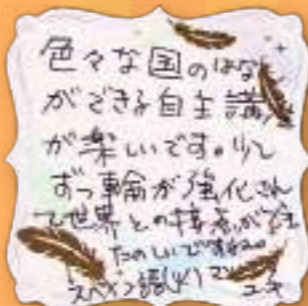 色々な国のはなし
ができる自主講
が楽しいです。少し
ずつ輪が強化され
て世界との接点が
たのしいですね。
スペイン語(火)
ユキ